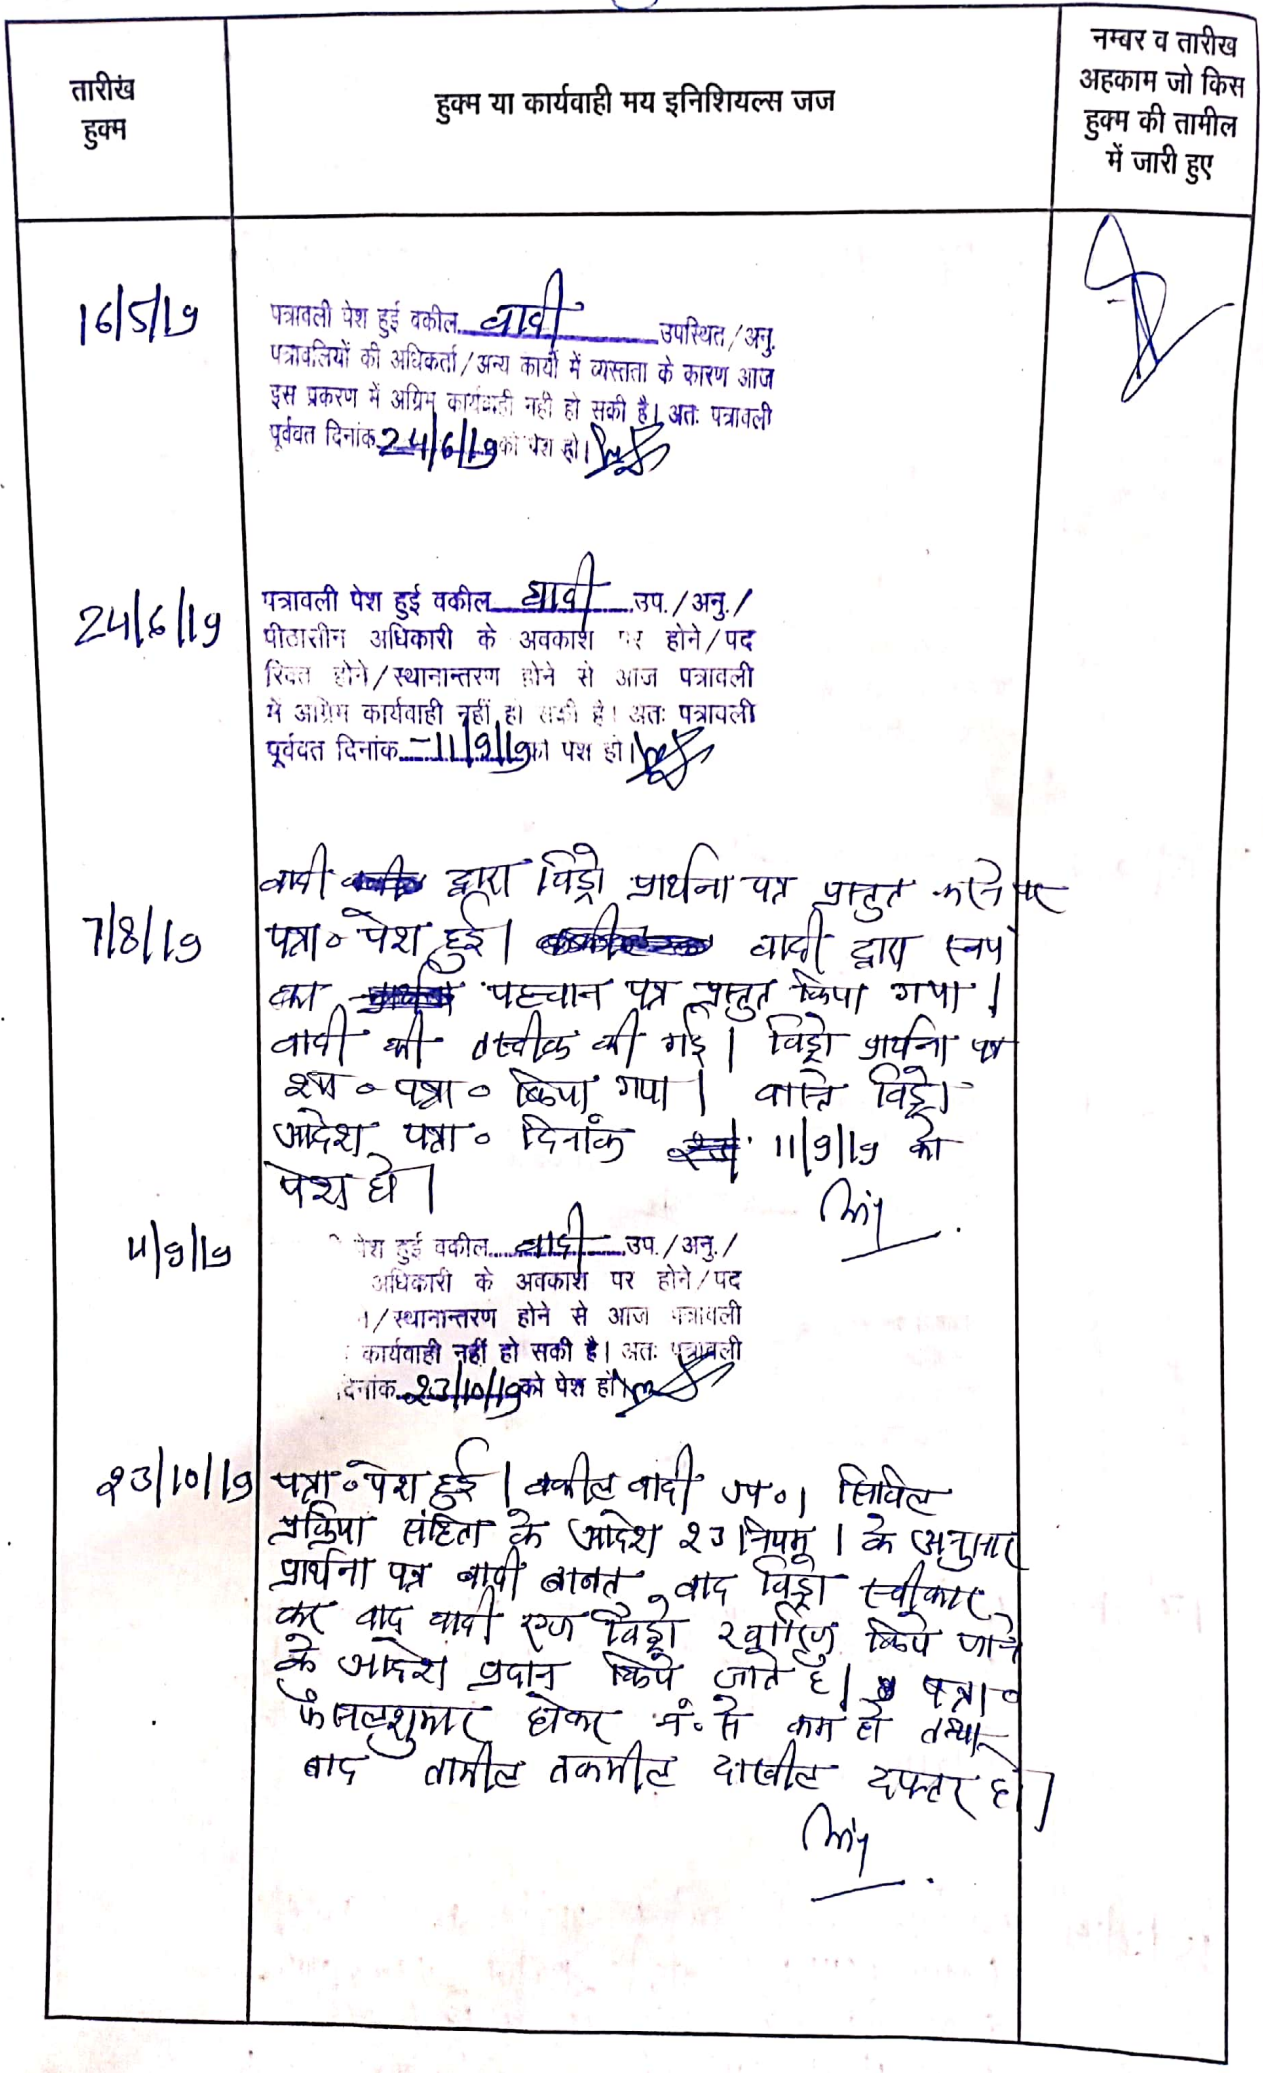 तारीख
हुक्म
हुक्म या कार्यवाही मय इनिशियल्स जज
नम्बर व तारीख
अहकाम जो किस
हुक्म की तामील
में जारी हुए
16/5/19
पत्रावली पेश हुई वकील वादी उपस्थित/अनु.
पत्रावलियों की अधिकता/अन्य कार्यो में व्यस्तता के कारण आज
इस प्रकरण में अग्रिम कार्यवाही नही हो सकी है। अतः पत्रावली
पूर्ववत दिनांक 24/6/19 को पेश हो।
24/6/19
पत्रावली पेश हुई वकील वादी उप./अनु./
पीठासीन अधिकारी के अवकाश पर होने/पद
रिक्त होने/स्थानान्तरण होने से आज पत्रावली
में अग्रिम कार्यवाही नहीं हो सकी है। अतः पत्रावली
पूर्ववत दिनांक 11/9/19 को पेश हो।
7/8/19
वादी द्वारा विड्रो प्रार्थना पत्र प्रस्तुत करने पर
पत्रा० पेश हुई। वादी द्वारा स्वयं
का पहचान पत्र प्रस्तुत किया गया।
वादी की तस्दीक की गई। विड्रो प्रार्थना पत्र
शा० पत्रा० किया गया। वास्ते विड्रो
आदेश पत्रा० दिनांक 11/9/19 को
पेश हो।
11/9/19
पेश हुई वकील वादी उप./अनु./
अधिकारी के अवकाश पर होने/पद
/स्थानान्तरण होने से आज पत्रावली
कार्यवाही नहीं हो सकी है। अतः पत्रावली
दिनांक 23/10/19 को पेश हो।
23/10/19
पत्रा० पेश हुई। वकील वादी उप०। सिविल
प्रक्रिया संहिता के आदेश 23 नियम 1 के अनुसार
प्रार्थना पत्र वादी बाबत वाद विड्रो स्वीकार
कर वाद वादी विड्रो खारिज किये जाने
के आदेश प्रदान किये जाते है। पत्रा०
फैसलशुमार होकर नं. से कम हो
बाद तामील तकमील दाखील दफ्तर हो।